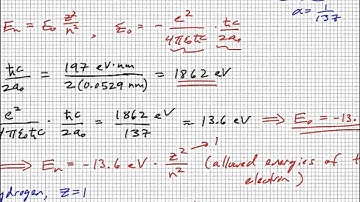 Eₙ = ε₀ z²/n² , ε₀ = - e²/4πε₀ħc · ħc/2a₀ α = 1/137
ħc/2a₀ = 197 eV·nm / 2(0.0529 nm) = 1862 eV
e²/4πε₀ħc · ħc/2a₀ = 1862 eV / 137 ≈ 13.6 eV ⟹ E₀ = -13.
⟹ Eₙ = -13.6 eV · z²/n² 1 (allowed energies of t
electron)
ydrogen, z=1